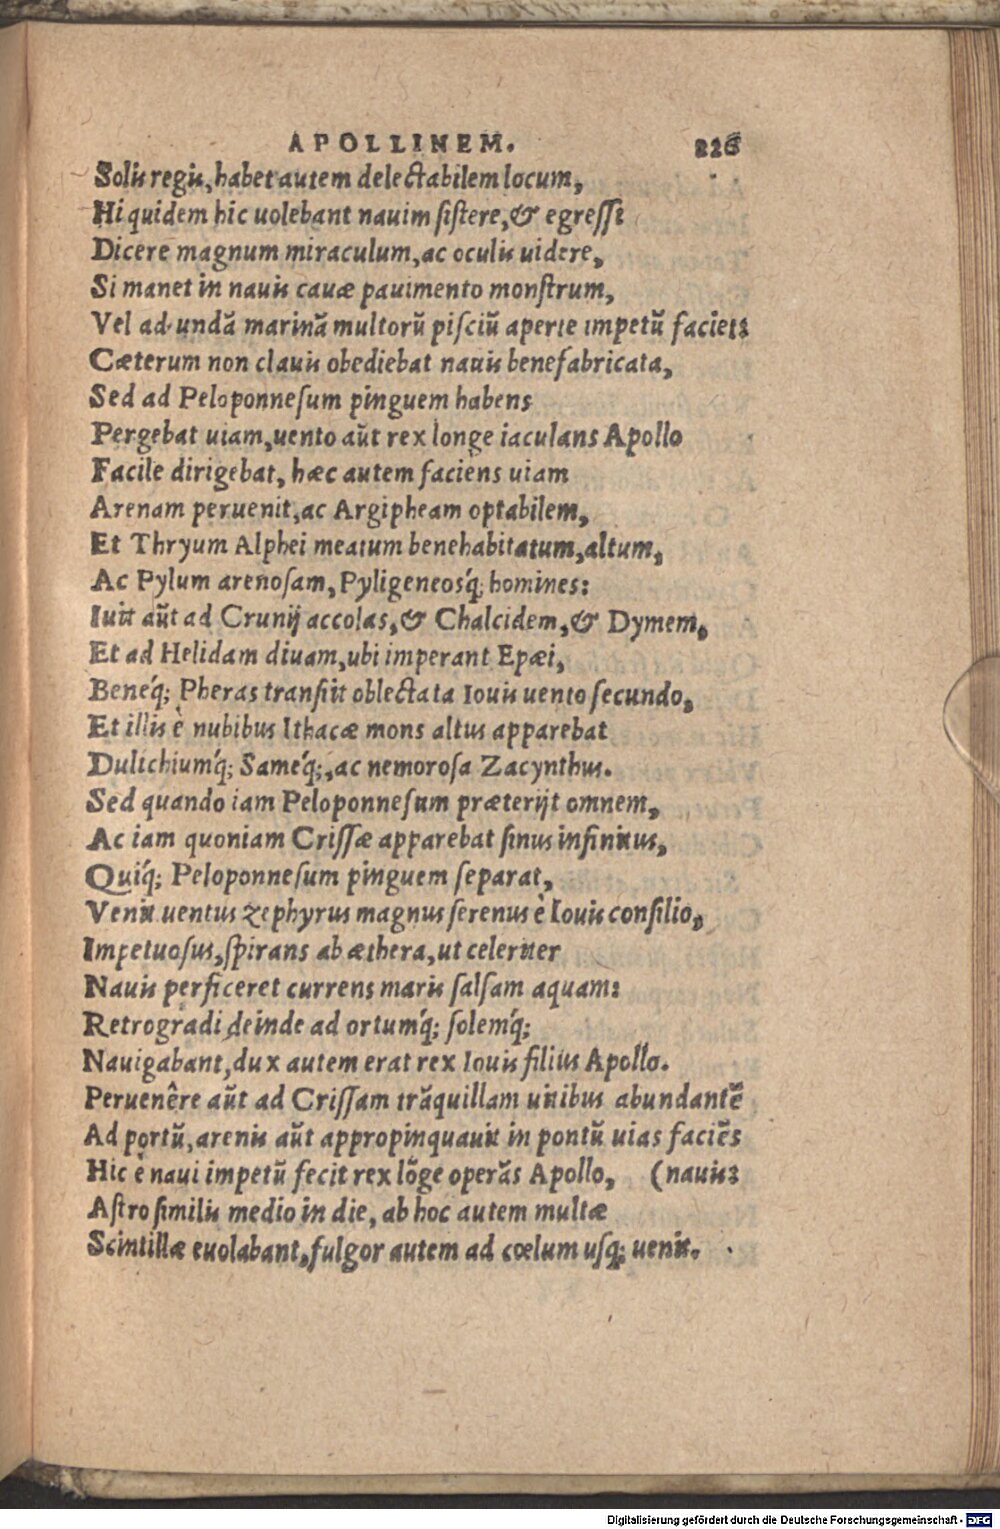 APOLLINEM. 226
Solis regis, habet autem delectabilem locum,
Hi quidem hic uolebant nauim sistere, & egressi
Dicere magnum miraculum, ac oculis uidere,
Si manet in nauis cauæ pauimento monstrum,
Vel ad undã marinã multorũ pisciũ aperte impetũ faciet:
Cæterum non clauis obediebat nauis benefabricata,
Sed ad Peloponnesum pinguem habens
Pergebat uiam, uento aũt rex longe iaculans Apollo
Facile dirigebat, hæc autem faciens uiam
Arenam peruenit, ac Argipheam optabilem,
Et Thryum Alphei meatum benehabitatum, altum,
Ac Pylum arenosam, Pyligeneosq́; homines:
Iuit aũt ad Crunij accolas, & Chalcidem, & Dymem,
Et ad Helidam diuam, ubi imperant Epæi,
Beneq́; Pheras transiit oblectata Iouis uento secundo,
Et illis è nubibus Ithacæ mons altus apparebat
Dulichiumq́; Sameq́;, ac nemorosa Zacynthus.
Sed quando iam Peloponnesum præterijt omnem,
Ac iam quoniam Crissæ apparebat sinus infinitus,
Quiq́; Peloponnesum pinguem separat,
Venit uentus zephyrus magnus serenus è Iouis consilio,
Impetuosus, spirans ab æthera, ut celeriter
Nauis perficeret currens maris salsam aquam:
Retrogradi deinde ad ortumq́; solemq́;
Nauigabant, dux autem erat rex Iouis filius Apollo.
Peruenêre aũt ad Crissam trãquillam uitibus abundantẽ
Ad portũ, arenis aũt appropinquauit in pontũ uias faciẽs
Hic è naui impetũ fecit rex lõge operãs Apollo, (nauis:
Astro similis medio in die, ab hoc autem multæ
Scintillæ euolabant, fulgor autem ad cœlum usq; uenit.
Digitalisierung gefördert durch die Deutsche Forschungsgemeinschaft - DFG